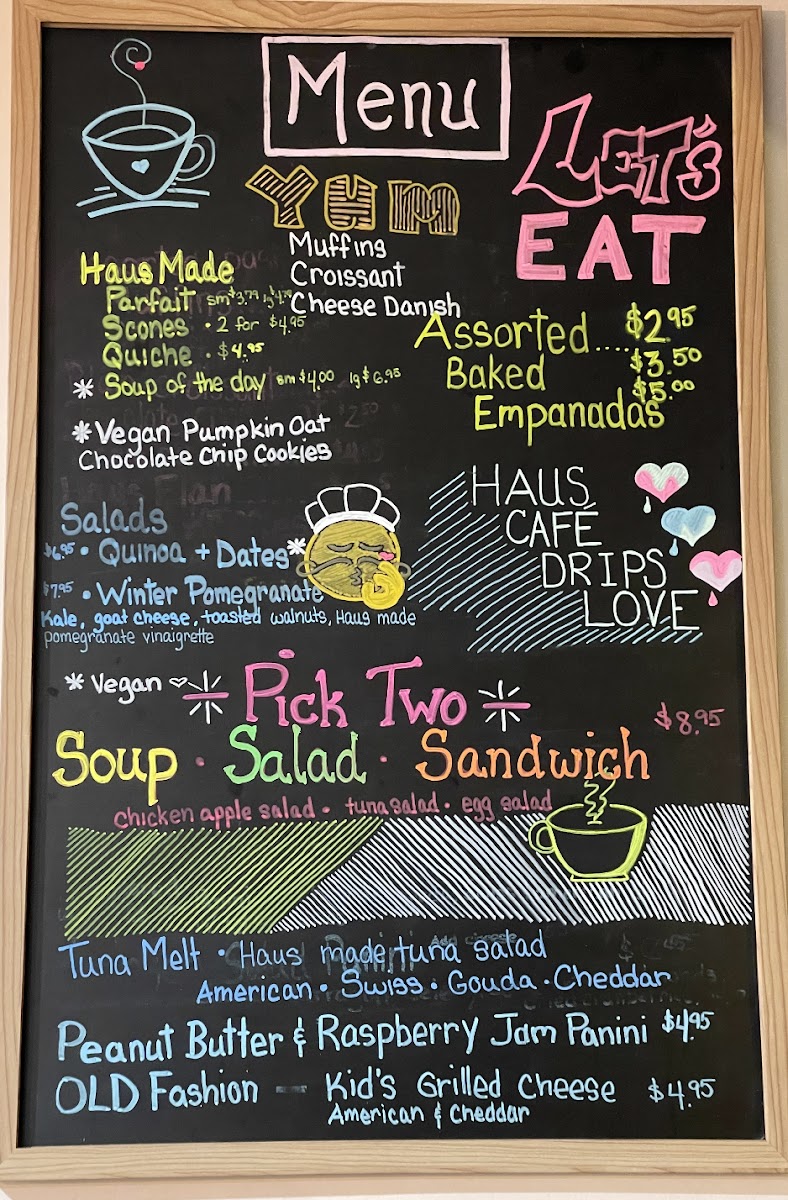 Menu
LET'S
EAT
YUM
Muffins
Croissant
Cheese Danish
Haus Made
Parfait sm $3.79 lg $4.79
Scones • 2 for $4.95
Quiche • $4.95
* Soup of the day sm $4.00 lg $6.95
* Vegan Pumpkin Oat
Chocolate Chip Cookies
Assorted.... $2.95
Baked $3.50
Empanadas $5.00
Salads
$6.95 • Quinoa + Dates *
$7.95 • Winter Pomegranate
Kale, goat cheese, toasted walnuts, Haus made
pomegranate vinaigrette
HAUS
CAFÉ
DRIPS
LOVE
* Vegan
Pick Two
$8.95
Soup • Salad • Sandwich
chicken apple salad • tuna salad • egg salad
Tuna Melt • Haus made tuna salad
American • Swiss • Gouda • Cheddar
Peanut Butter & Raspberry Jam Panini $4.95
OLD Fashion — Kid's Grilled Cheese $4.95
American & Cheddar